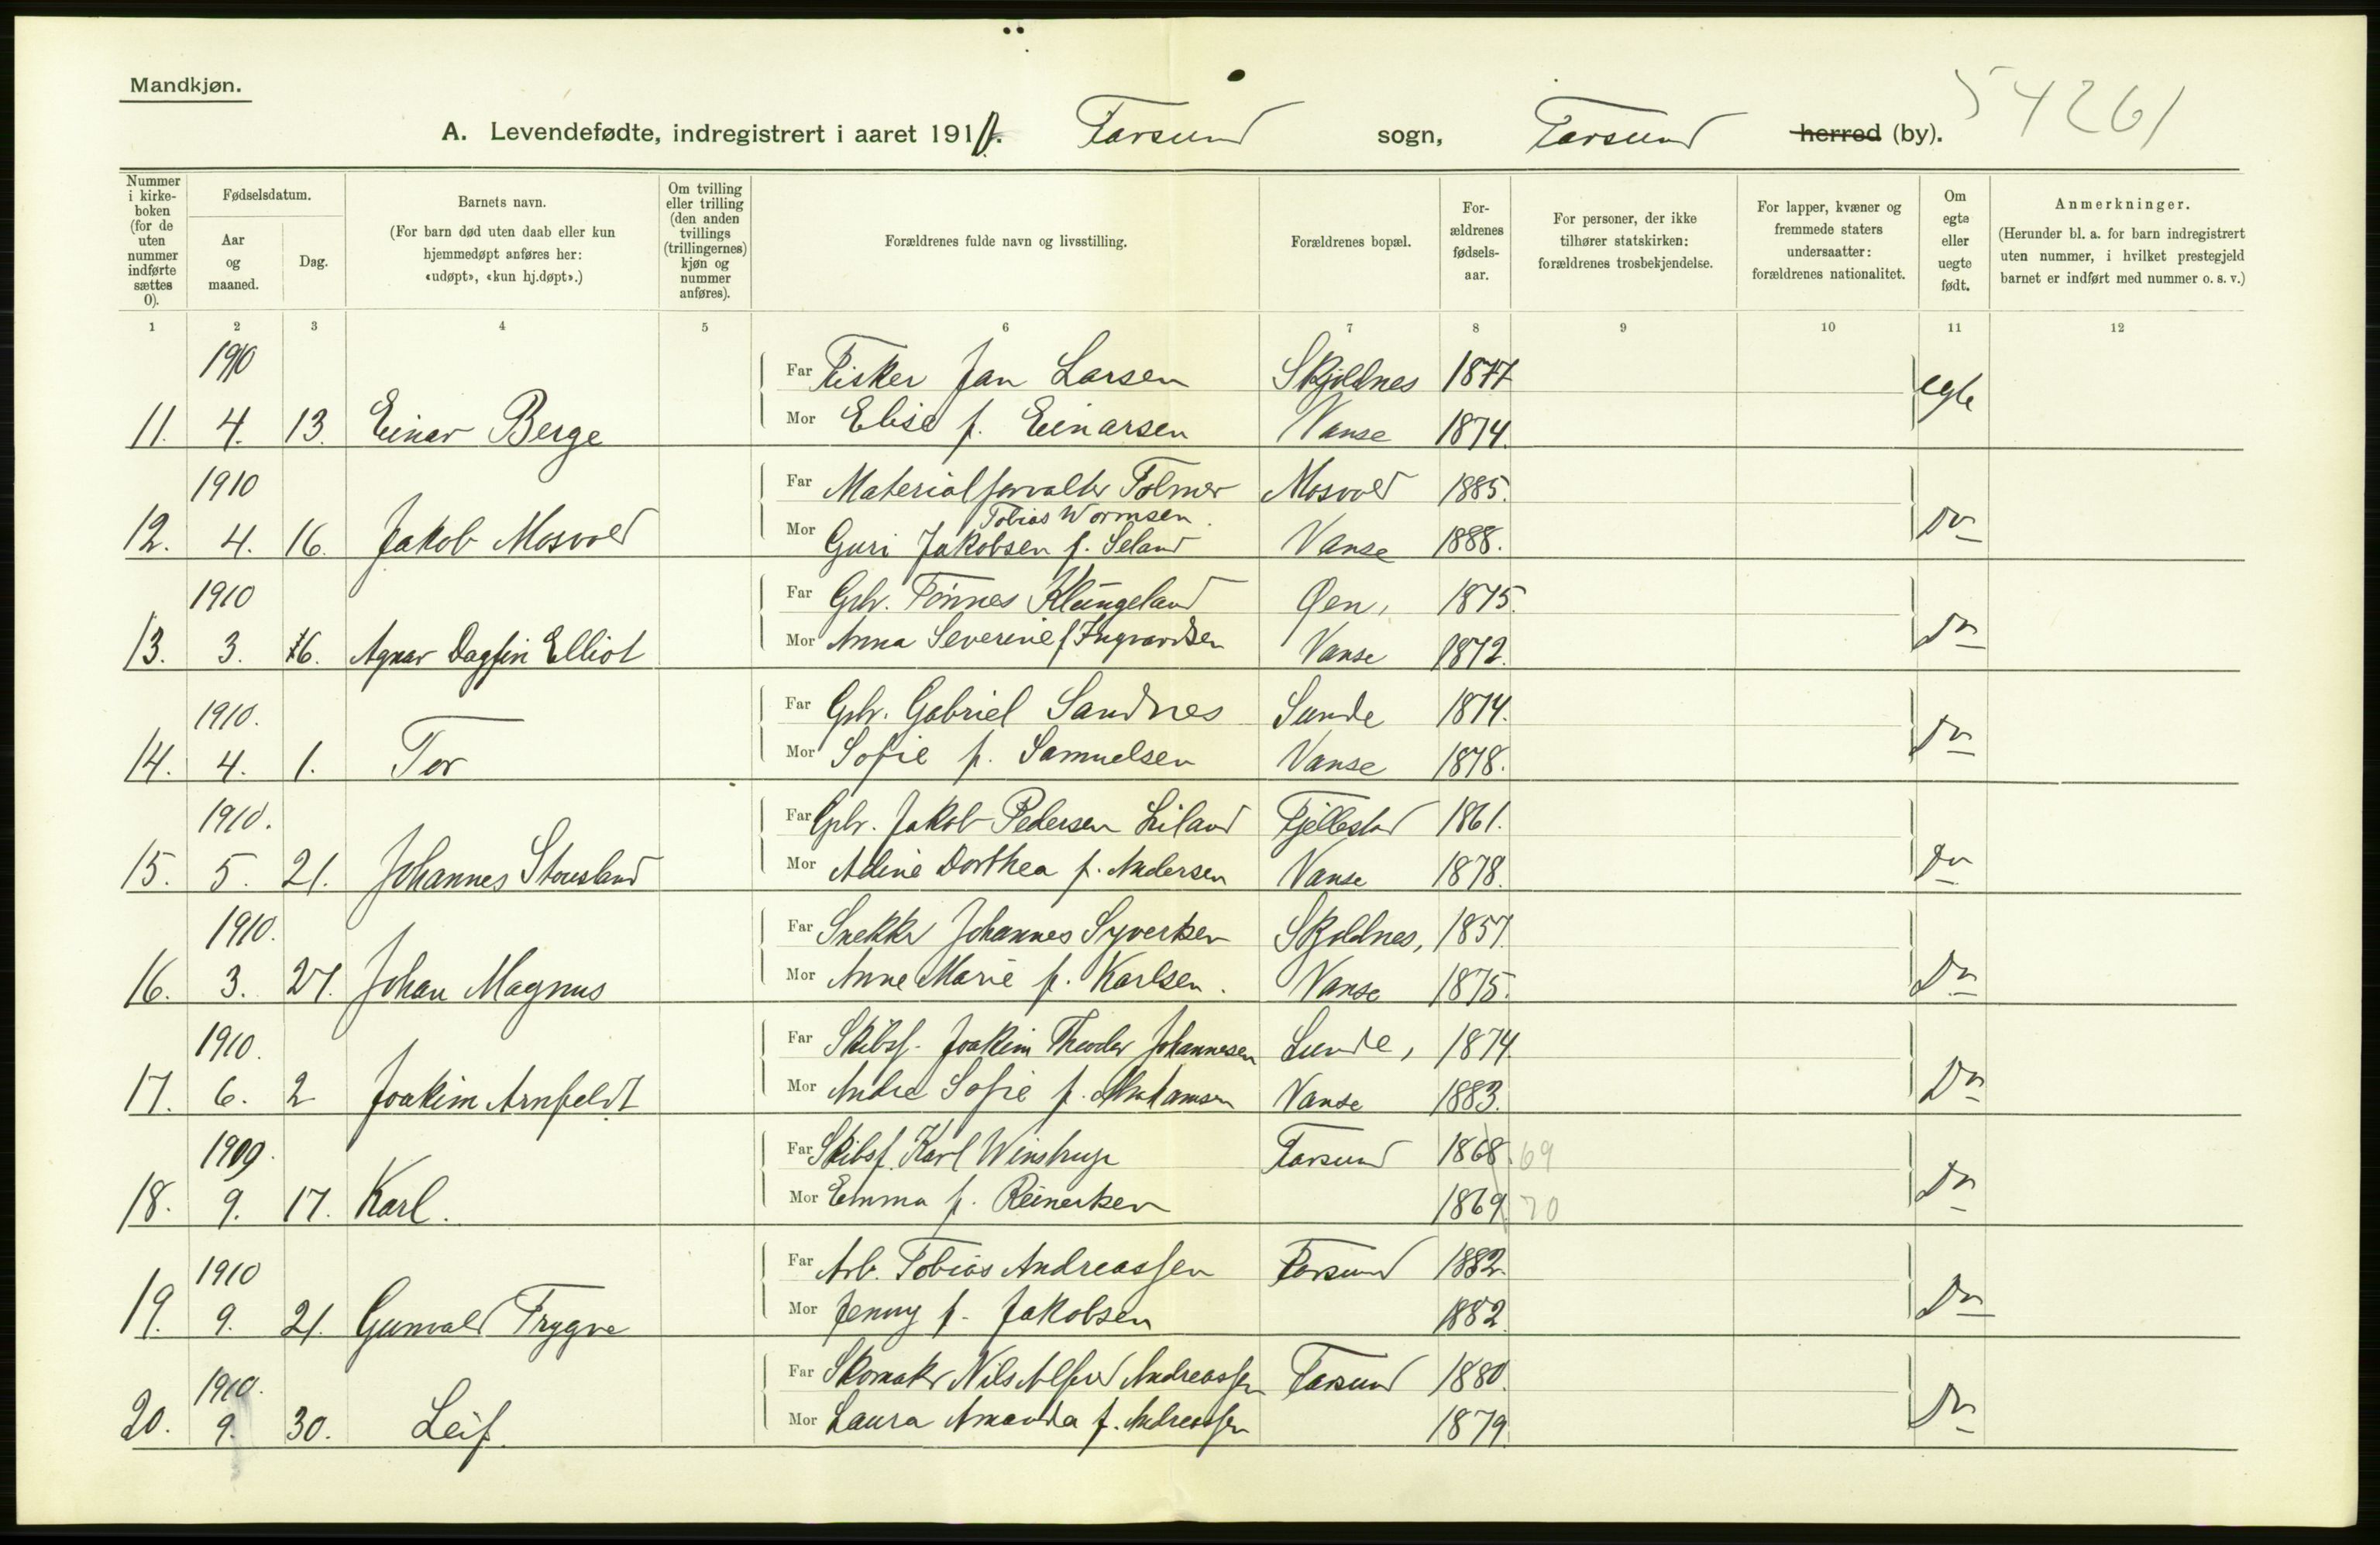 Mandkjøn.
54261
A. Levendefødte, indregistrert i aaret 191 Farsund sogn, Farsund herred (by).
Nummer i kirke-boken (for de uten nummer indførte sættes 0).
Fødselsdatum.
Aar og maaned.
Dag.
Barnets navn.
(For barn død uten daab eller kun hjemmedøpt anføres her: «udøpt», «kun hj.døpt».)
Om tvilling eller trilling (den anden tvillings (trillingernes) kjøn og nummer anføres).
Forældrenes fulde navn og livsstilling.
Forældrenes bopæl.
For-ældrenes fødsels-aar.
For personer, der ikke tilhører statskirken: forældrenes trosbekjendelse.
For lapper, kvæner og fremmede staters undersaatter: forældrenes nationalitet.
Om egte eller uegte født.
Anmerkninger.
(Herunder bl. a. for barn indregistrert uten nummer, i hvilket prestegjeld barnet er indført med nummer o. s. v.)
1 2 3 4 5 6 7 8 9 10 11 12
1910 Far Fisker Jan Larsen Skjoldnes 1877 egte
11. 4. 13. Einar Berge Mor Elise f. Einarsen Vanse 1874.
1910 Far Materialforvalter Tolmer Mosvold 1885.
Tobias Wormsen.
12. 4. 16. Jakob Mosvold Mor Guri Jakobsen f. Seland Vanse 1888. Do
1910 Far Grbr. Tønnes Klungeland Øen, 1875.
13. 3. 16. Agnar Dagfin Elliot Mor Anna Severine f Ingvardsen Vanse 1872. Do
1910. Far Grbr. Gabriel Sandnes Sunde 1874.
14. 4. 1. Tor Mor Sofie f. Samuelsen Vanse 1878. Do
1910. Far Grbr. Jakob Pedersen Liland Fjellestad 1861.
15. 5. 21. Johannes Stousland Mor Adine Dorthea f. Andersen Vanse 1878. Do
1910. Far Snekker Johannes Syvertsen Skjoldnes, 1857.
16. 3. 27. Johan Magnus Mor Anne Marie f. Karlsen. Vanse 1875. Do
1910. Far Skibsf. Joakim Theodor Johannesen Lunde, 1874
17. 6. 2 Joakim Arnfeldt Mor Andrea Sofie f. Abrahamsen Vanse 1883. Do
1909. Far Skibsf. Karl Winstrup Farsund 1868. 69
18. 9. 17. Karl. Mor Emma f. Reinertsen 1869 70 Do
1910 Far Arb. Tobias Andreassen Farsund 1882.
19. 9. 21. Gunvald Trygve Mor Jenny f. Jakobsen 1882. Do
1910. Far Skomaker Nils Alfred Andreassen Farsund 1880.
20. 9. 30. Leif. Mor Laura Amanda f. Andreassen 1879. Do